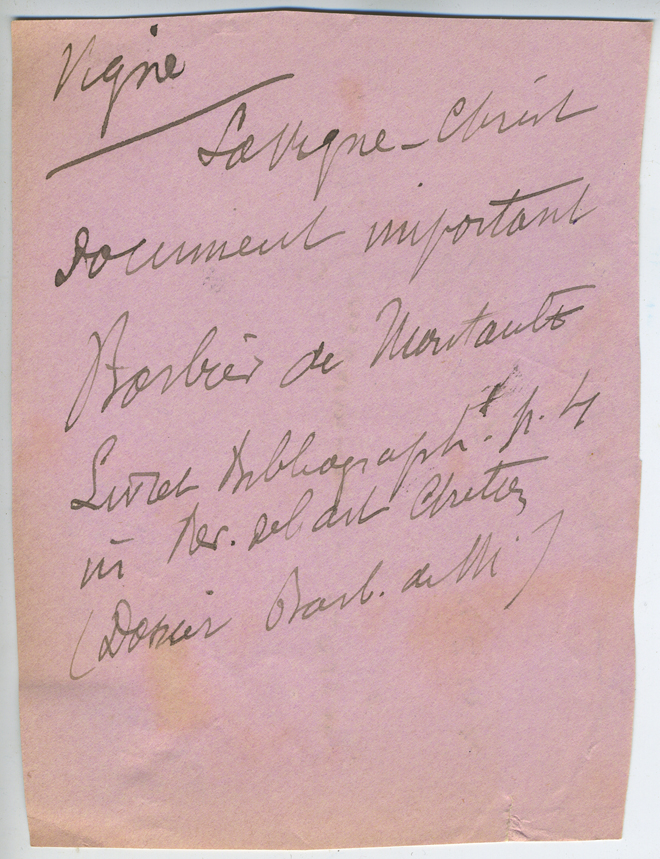 Vigne
La Vigne - Christ
Document important
Barbier de Montault
Livret bibliograph. p. 4
in Rev. de l'art chrétien
(Dossier Barb. de M)